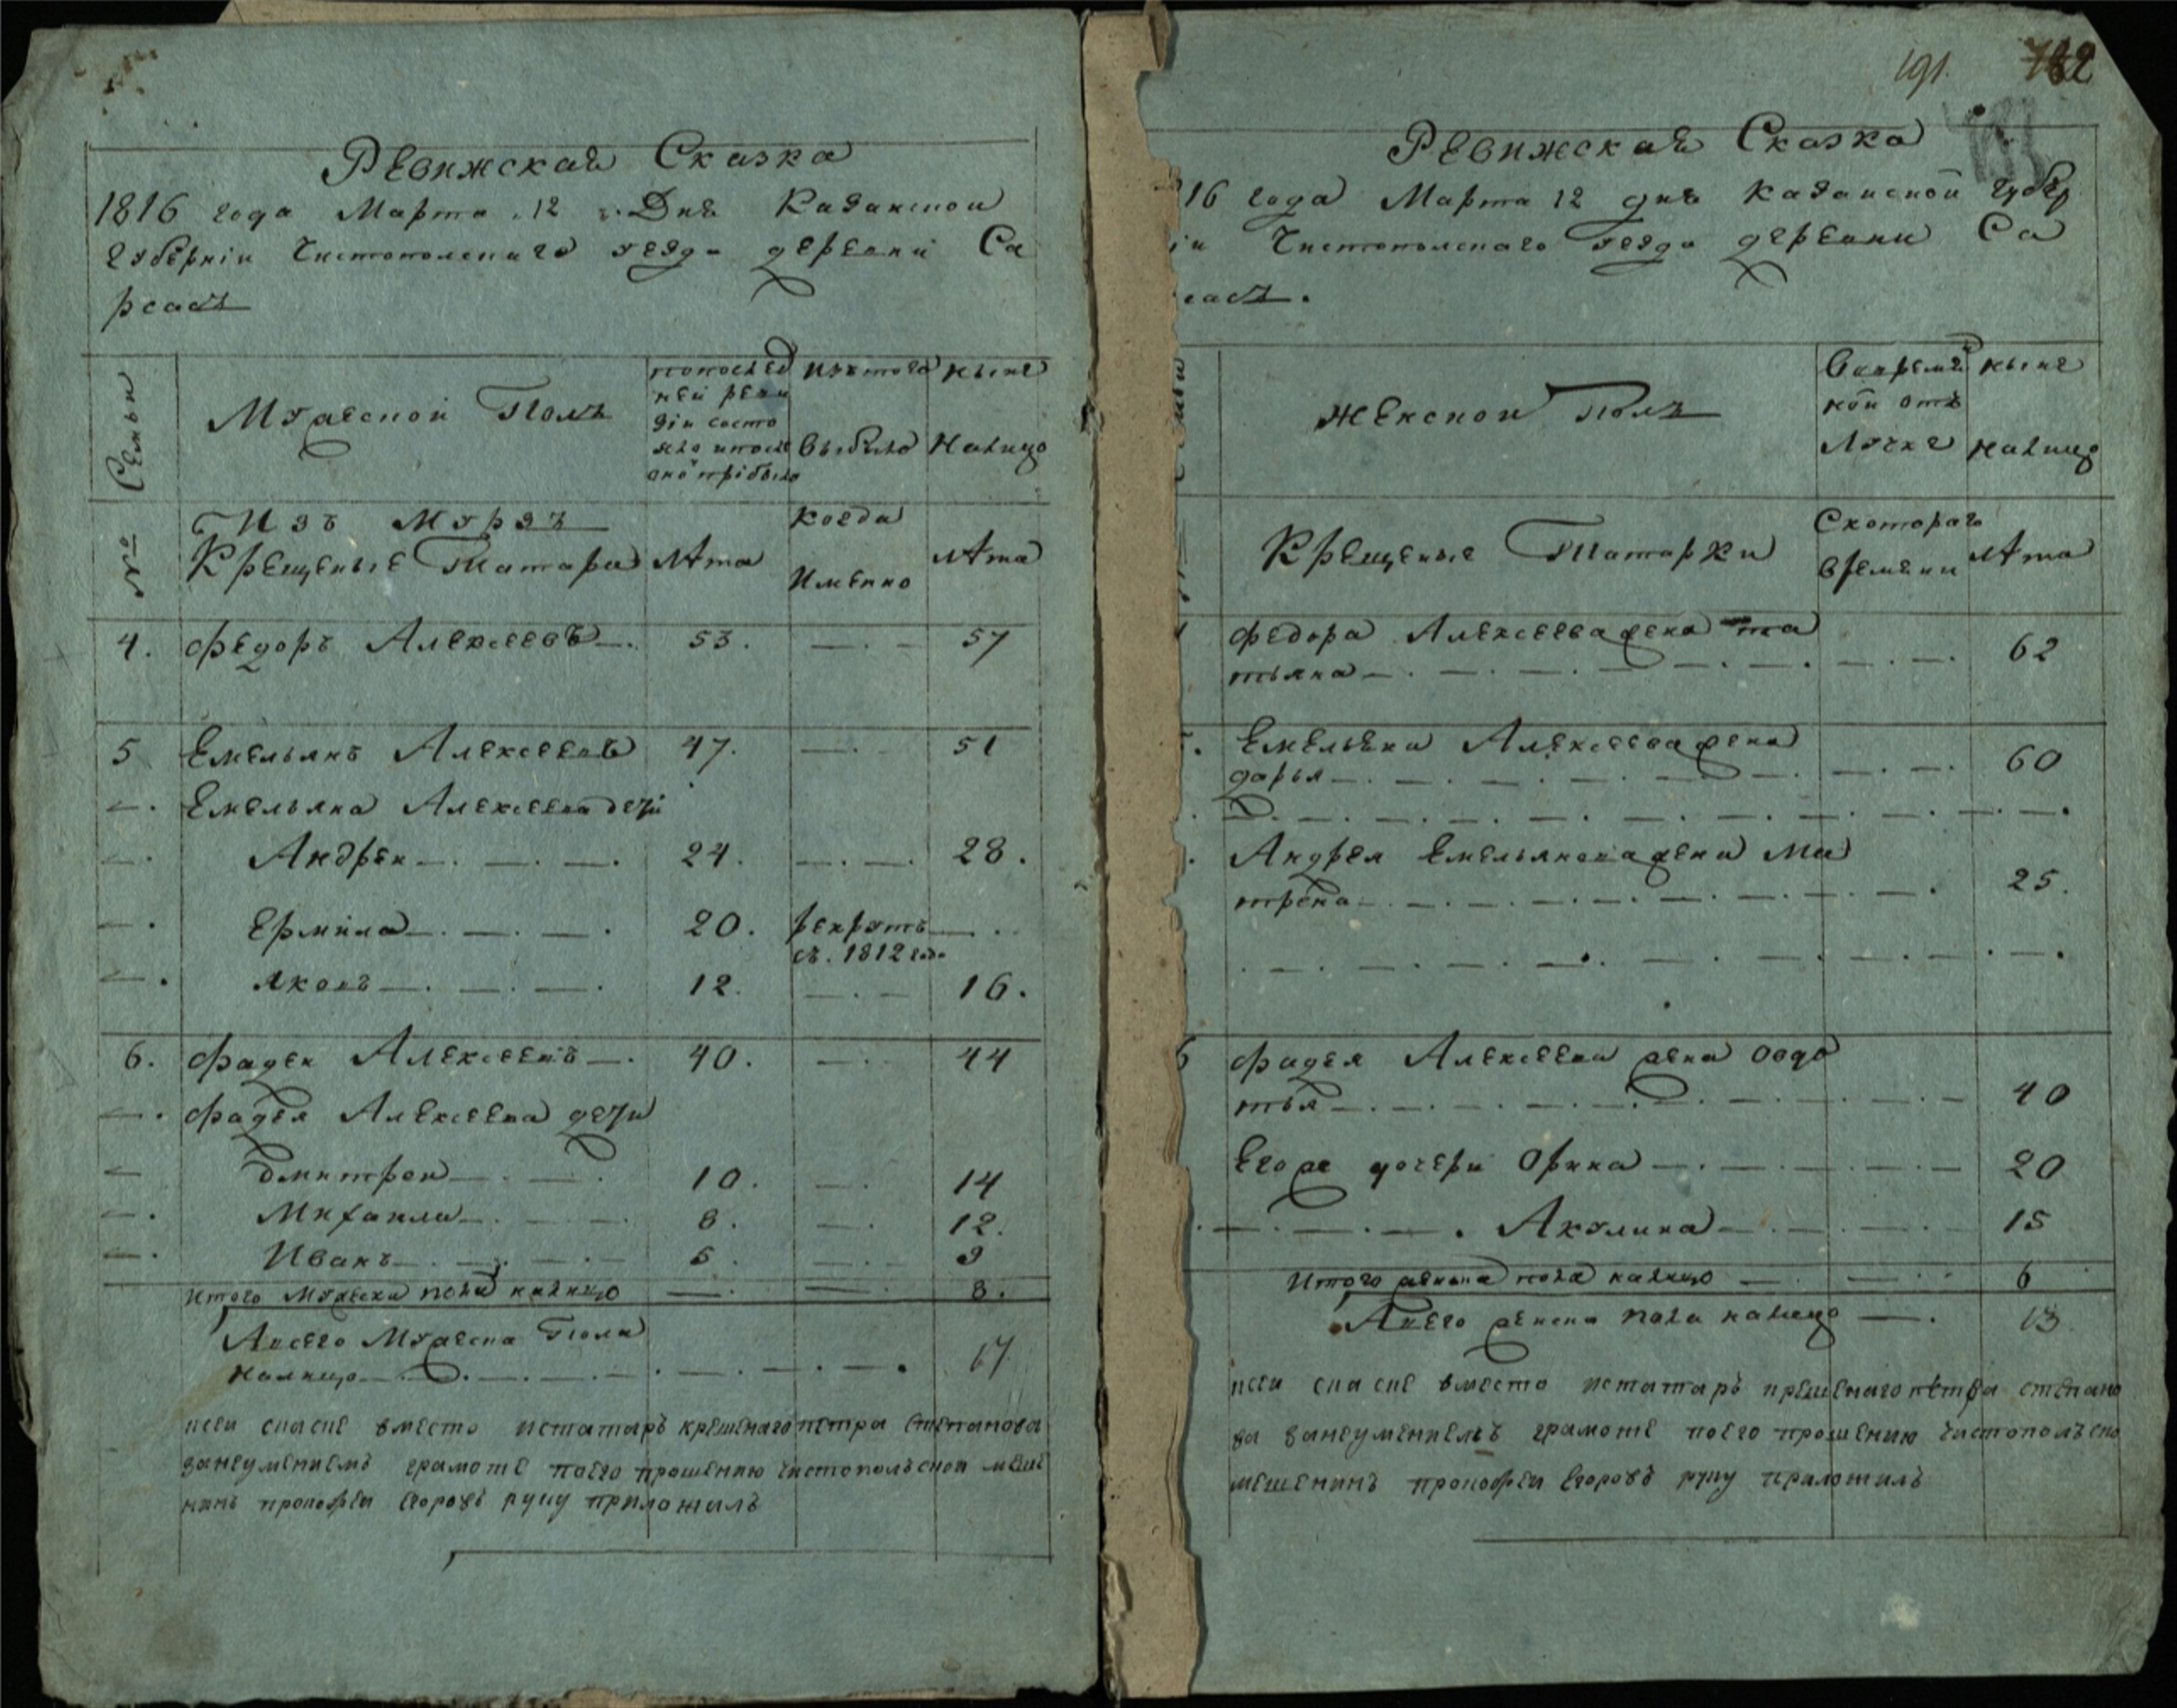 Ревижская Сказка
1816 года Марта 12 Дня Казанской
Губернiи Чистополскаго уезда деревни Са
рсасъ
Семьи
Мужеской Полъ
попослед
ней реви
зiи состо
яло ипосле
оной прiбыло
Изътого
выбыло
ныне
Налицо
№
Изъ Мурзъ
Крещеные Татара
лѣта
когда
Именно
лѣта
4. Федоръ Алексеевъ 53. 57
5 Емельянъ Алексеевъ 47. 51
Емельяна Алексеева дети
Андреи 24. 28.
Ермила 20. рекрутъ
съ. 1812 года
Яковъ 12. 16.
6. Фадеи Алексеевъ 40. 44
Фадея Алексеева дети
Дмитреи 10. 14
Михаила 8. 12.
Иванъ 5. 9
Итого Мужска пола налицо 8.
Авсего Мужеска Пола
налицо 17.
ксеи скаске вместо истатаръ крешенаго петра Степанова
занеумениемъ грамоте поего прошению Чистопольской меше
нинъ прокофеи Егоровъ руку приложилъ
191. 782
Ревижская Сказка
16 года Марта 12 дня Казанской губер
iи Чистополскаго уезда деревни Са
сасъ.
Женской Полъ
Вовремян
ной отъ
Лучке
ныне
налицо
Крещеные Татарки
Скотораго
времени
лѣта
Федора Алексеева жена та
тьяна 62
Емельяна Алексеева жена
дарья 60
Андрея Емельянова жена Ма
трена 25.
6 Фадея Алексеева жена овдо
тья 40
Егоже дочери Орина 20
Акулина 15
Итого женска пола налицо 6
Авсего женска пола налицо 13.
ксеи скаске вместо истатаръ крешенаго петра степано
ва занеумениемъ грамоте поего прошению Чистопольско
мешенинъ прокофеи Егоровъ руку приложилъ